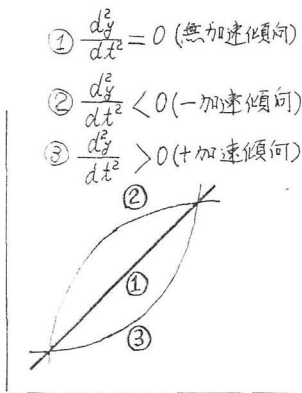 ① d²y/dt² = 0 (無加速傾向)
② d²y/dt² < 0 (一加速傾向)
③ d²y/dt² > 0 (+加速傾向)
②
①
③